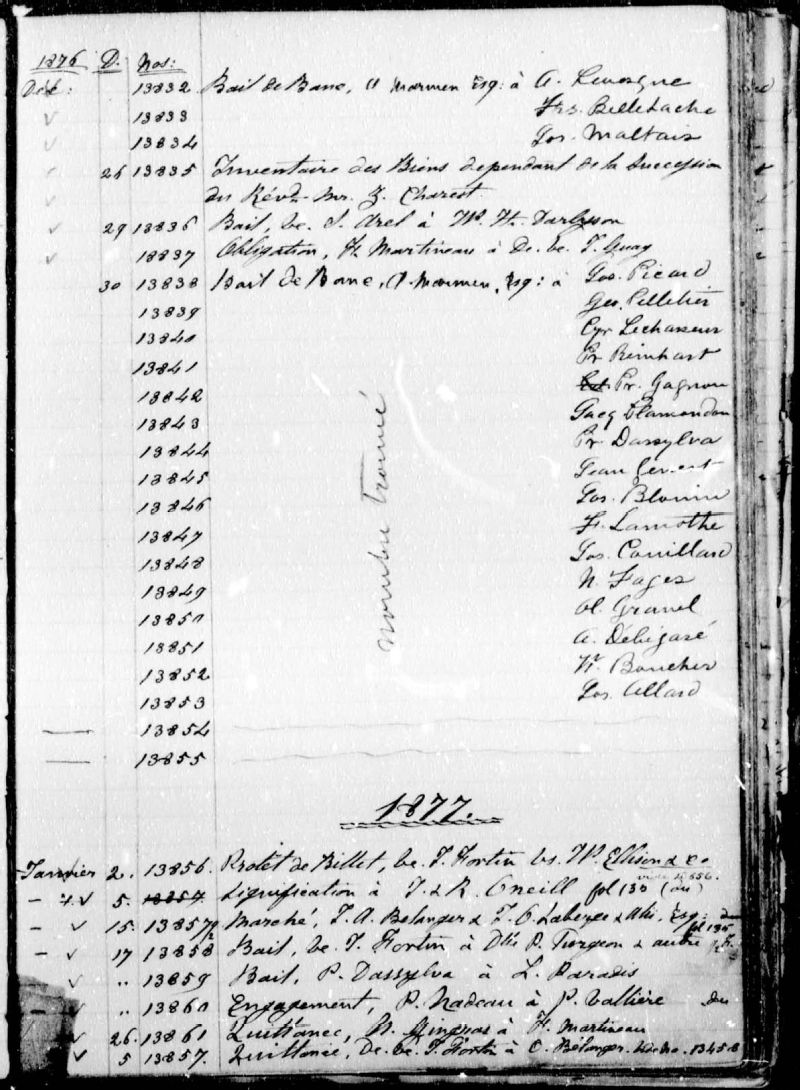 1876 D. Nos:
Déc: 13832 Bail de Banc, A Marmen Esq: à A. Levesque
13833 Frs. Belletache
13834 Jos. Maltais
26 13835 Inventaire des Biens dependant de la Succession
du Révd. Mr. Z. Charest.
29 13836 Bail, ve. J. Arel à W. H.
13837 Obligation, H. Martineau à De. ve. T. Guay
30 13838 Bail de Banc, A Marmen, Esq: à Jos. Picard
13839 Geo. Pelletier
13840 Cyr Lechasseur
13841 Pr Rinhart
13842 Pr. Gagnon
13843 Jacq Plamondon
13844 Pr Dassylva
13845 Jean
13846 Jos. Blouin
13847 F. Lamothe
13848 Jos. Couillard
13849 N. Fages
13850 Ol. Gravel
13851 A. Débigaré
13852 Boucher
13853 Jos. Allard
13854
13855
nombre trouvé
1877.
Janvier 2. 13856. Protêt de Billet, ve. T. Fortin vs. W. Ellison & Co
5. 13857 Signification à J. & R. Oneill fol 130
15. 13857½ Marché, J. A. Belanger & F. O. Laberge & Esq:
fol 135
17 13858 Bail, ve. T. Fortin à Dlle P. Turgeon & autre
" 13859 Bail, P. Dassylva à L. Paradis
" 13860 Engagement, P. Nadeau à P. Vallière du
26. 13861 Quittance, N. Gingras à H. Martineau
5 13857. Quittance, De. ve. T. Fortin à O. Bélanger. 13458